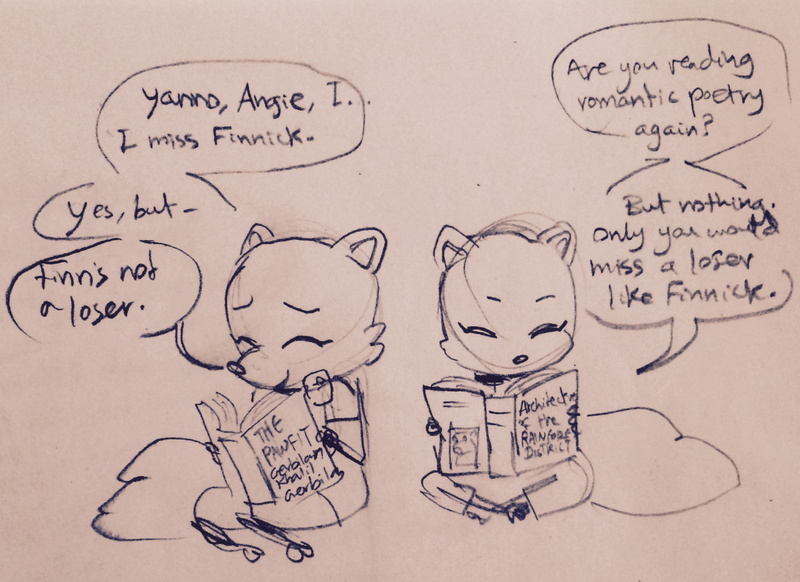 Yanno, Angie, I..
I miss Finnick.
Are you reading
romantic poetry
again?
Yes, but-
But nothing.
Only you would
miss a loser
like Finnick.
Finn's not
a loser.
THE
PAWFIT
Khalil
Gerbil
Architecture
of the
RAINFOREST
DISTRICT